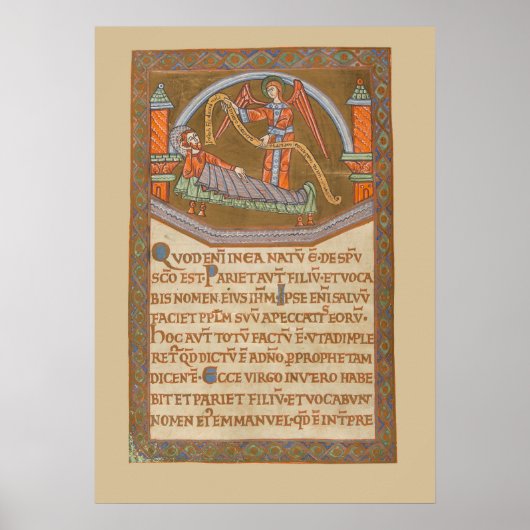 QUOD ENĪ IN EA NATŪ Ē · DE SPŪ
SC̄O EST · PARIET AŪT FILIŪ · ET VOCA
BIS NOMEN EIUS IH̄M · IPSE ENĪ SALVŪ
FACIET PP̄LM SVŪ A PECCATIS EORŪ ·
HOC AŪT TOTŪ FACTŪ Ē · UT ADIMPLE
RET QD̄ DICTŪ Ē A DN̄O · P PROPHETAM
DICENĒ · ECCE VIRGO IN VTERO HABE
BIT ET PARIET FILIŪ · ET VOCABVNT
NOMEN EI᾽ EMMANUEL · QD̄ Ē INTPRE